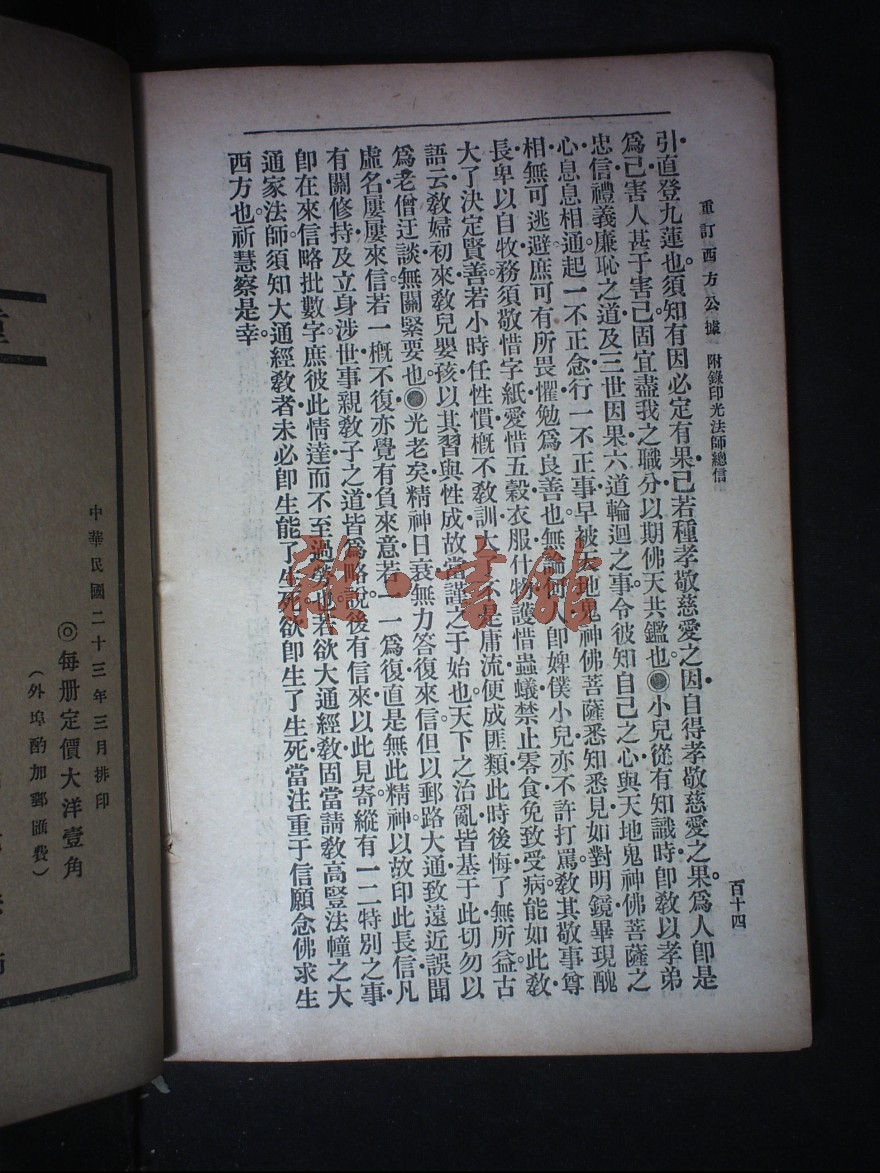 重訂西方公據 附錄印光法師總信 百十四
引直登九蓮也須知有因必定有果己若種孝敬慈愛之因自得孝敬慈愛之果。爲人卽是
爲己害人甚于害己固宜盡我之職分以期佛天共鑑也。◉小兒從有知識時卽敎以孝弟
忠信禮義廉恥之道及三世因果六道輪迴之事令彼知自己之心與天地鬼神佛菩薩之
心息息相通起一不正念行一不正事早被天地鬼神佛菩薩悉知悉見如對明鏡畢現醜
相無可逃避庶可有所畏懼勉爲良善也無論何人卽婢僕小兒亦不許打罵敎其敬事尊
長卑以自牧務須敬惜字紙愛惜五穀衣服什物護惜蟲蟻禁止零食免致受病能如此敎
大了決定賢善若小時任性慣槪不敎訓大了不是庸流便成匪類此時後悔了無所益古
語云敎婦初來敎兒嬰孩以其習與性成故當謹之于始也。天下之治亂皆基于此切勿以
爲老僧迂談無關緊要也。◉光老矣精神日衰無力答復來信但以郵路大通致遠近誤聞
虛名屢屢來信若一槪不復亦覺有負來意若一一爲復直是無此精神以故印此長信凡
有關修持及立身涉世事親敎子之道皆爲略說後有信來以此見寄縱有一二特別之事
卽在來信略批數字庶彼此情達而不至過勞也若欲大通經敎固當請敎高豎法幢之大
通家法師須知大通經敎者未必卽生能了生死欲卽生了生死當注重于信願念佛求生
西方也。祈慧察是幸。
中華民國二十三年三月排印
◎每册定價大洋壹角
(外埠酌加郵匯費)